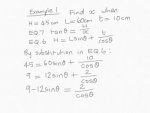 Example 1. Find x when
H=45cm L=60cm t=10cm
EQ.7 tanθ = H/x
EQ.6 H = L sinθ + t/cosθ
By substitution in EQ.6:
45 = 60sinθ + 10/cosθ
9 = 12sinθ + 2/cosθ
9-12sinθ = 2/cosθ